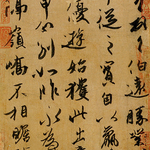 首伯遠勝業
從之寶自以羸
優游始獲此出
申分別如昨永為
隔嶺嶠不相瞻